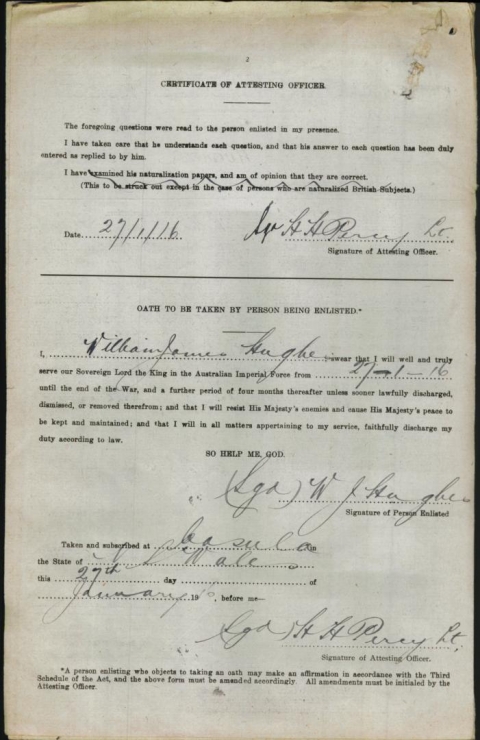 2
CERTIFICATE OF ATTESTING OFFICER.
The foregoing questions were read to the person enlisted in my presence.
I have taken care that he understands each question, and that his answer to each question has been duly
entered as replied to by him.
I have examined his naturalization papers, and am of opinion that they are correct.
(This to be struck out except in the case of persons who are naturalized British Subjects.)
Date 27/1/16 H H Percy Lt.
Signature of Attesting Officer.
OATH TO BE TAKEN BY PERSON BEING ENLISTED.*
I, William James Hughes swear that I will well and truly
serve our Sovereign Lord the King in the Australian Imperial Force from 27-1-16
until the end of the War, and a further period of four months thereafter unless sooner lawfully discharged,
dismissed, or removed therefrom; and that I will resist His Majesty's enemies and cause His Majesty's peace to
be kept and maintained; and that I will in all matters appertaining to my service, faithfully discharge my
duty according to law.
SO HELP ME, GOD.
(Sgd) W J Hughes
Signature of Person Enlisted
Taken and subscribed at Casula in
the State of Wales
this 27th day of
January 191 , before me—
Sgd) H H Percy Lt.
Signature of Attesting Officer.
*A person enlisting who objects to taking an oath may make an affirmation in accordance with the Third
Schedule of the Act, and the above form must be amended accordingly. All amendments must be initialed by the
Attesting Officer.